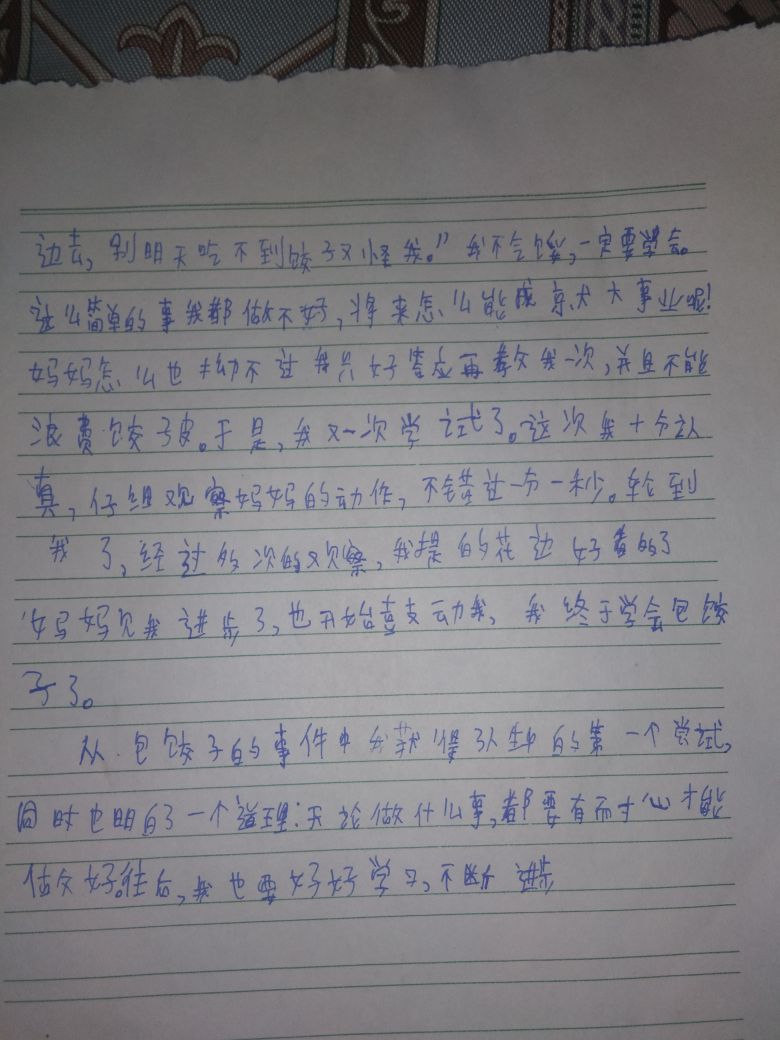 边去,别明天吃不到饺子又怪我。”我不会馁,一定要学会。
这么简单的事我都做不好,将来怎么能成大大事业呢!
妈妈怎么也劝不过我只好答应再教我一次,并且不能
浪费饺子皮。于是,我又一次学试了。这次我十分认
真,仔细观察妈妈的动作,不错过一分一秒。轮到
我了,经过多次的观察,我捏的花边好看的了
妈妈见我进步了,也开始支动我,我终于学会包饺
子了。
从包饺子的事件中我获得了人生中的第一个尝试,
同时也明白了一个道理:无论做什么事,都要有耐心才能
做好。往后,我也要好好学习,不断进步